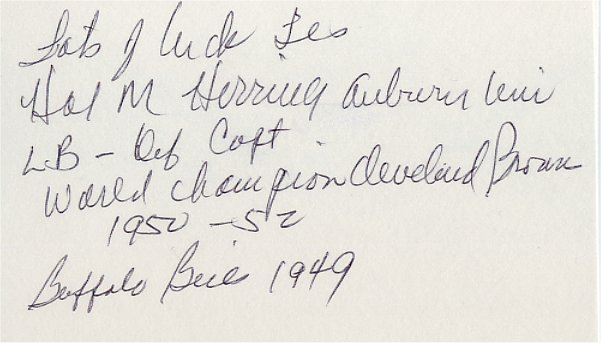 Lots of luck Les
Hal M Herring Auburn Uni
LB - Def Capt
World Champion Cleveland Browns
1950 - 52
Buffalo Bills 1949